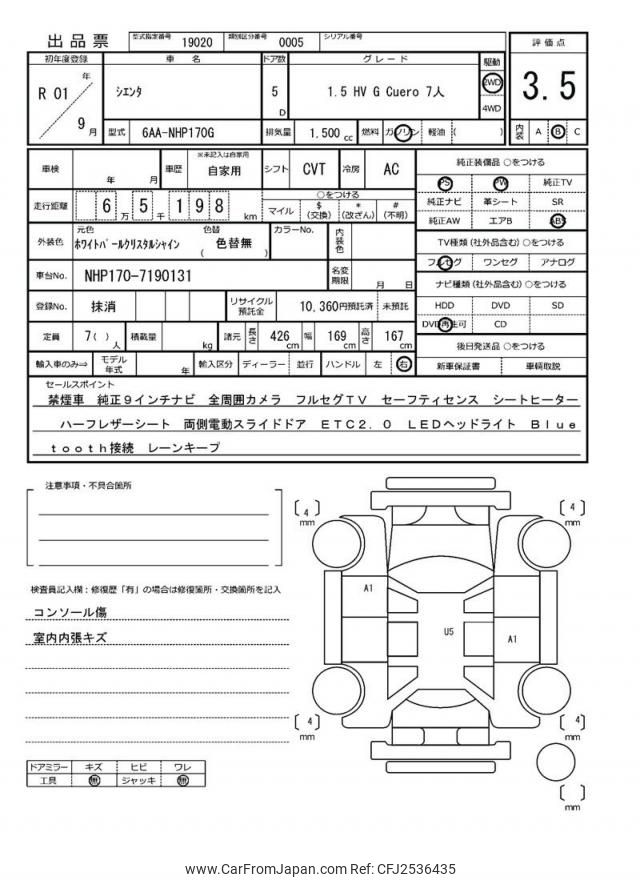 出品票 型式指定番号 19020 類別区分番号 0005 シリアル番号
初年度登録 車名 ドア数 グレード 駆動 評価点
R 01 年 9 月 シエンタ 5 D 1.5 HV G Cuero 7人 2WD 4WD 3.5
型式 6AA-NHP170G 排気量 1.500 cc 燃料 ガソリン 軽油 ( ) 内装 A B C
車検 年 月 車歴 ※未記入は自家用 自家用 シフト CVT 冷房 AC 純正装備品 ○をつける
PS PW 純正TV
走行距離 6 万 5 千 1 9 8 km ○をつける 純正ナビ 革シート SR
マイル $(交換) *(改ざん) #(不明) 純正AW エアB ABS
外装色 元色 ホワイトパールクリスタルシャイン 色替 ( 色替無 ) カラーNo. 内装色 TV種類 (社外品含む) ○をつける
フルセグ ワンセグ アナログ
車台No. NHP170-7190131 名変期限 月 日 ナビ種類 (社外品含む) ○をつける
登録No. 抹消 リサイクル預託金 10,360円預託済 未預託 HDD DVD SD
DVD再生可 CD
定員 7( ) 人 積載量 kg 諸元 長さ 426 cm 幅 169 cm 高さ 167 cm 後日発送品 ○をつける
輸入車のみ⇒ モデル年式 年 輸入区分 ディーラー 並行 ハンドル 左 右 新車保証書 車輌取説
セールスポイント
禁煙車 純正9インチナビ 全周囲カメラ フルセグTV セーフティセンス シートヒーター
ハーフレザーシート 両側電動スライドドア ETC2.0 LEDヘッドライト Blue
tooth接続 レーンキープ
注意事項・不具合箇所
検査員記入欄:修復歴「有」の場合は修復箇所・交換箇所を記入
コンソール傷
室内内張キズ
ドアミラー キズ ヒビ ワレ
工具 無 ジャッキ 無
〔 4 〕 mm 〔 4 〕 mm
A1 U5 A1
〔 4 〕 mm 〔 4 〕 mm
〔 〕 mm
www.CarFromJapan.com Ref: CFJ2536435